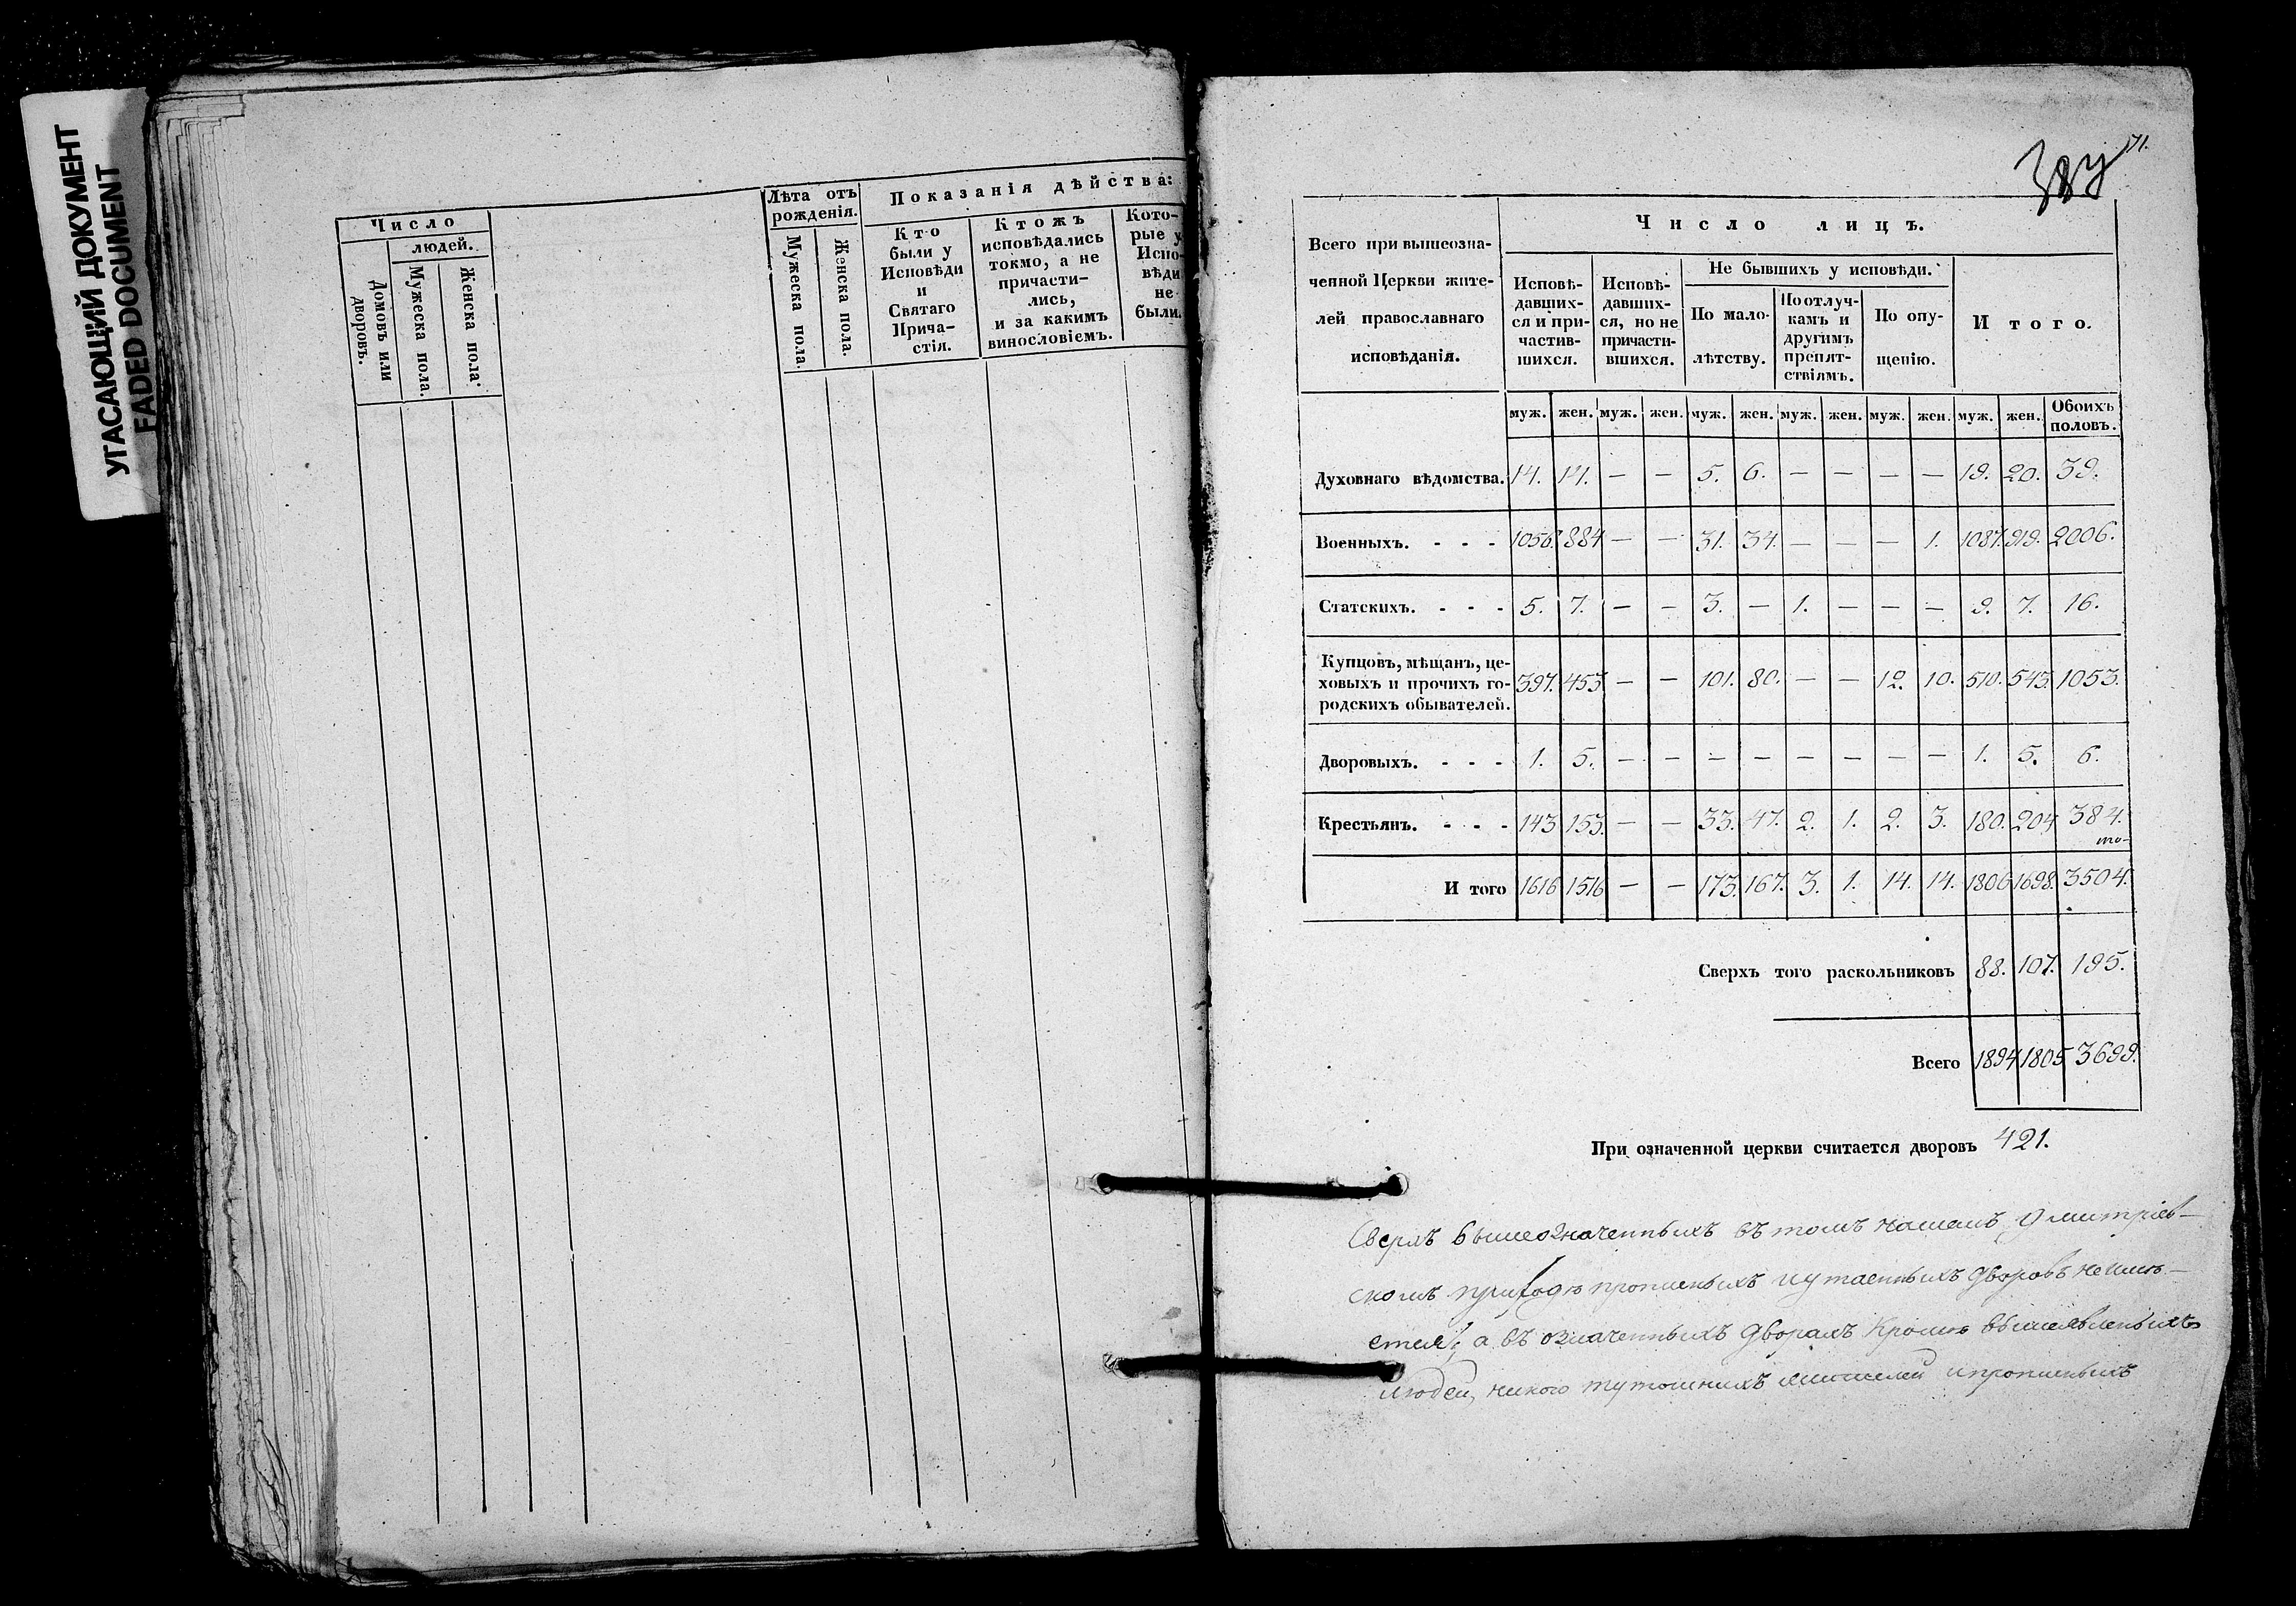 УГАСАЮЩИЙ ДОКУМЕНТ
FADED DOCUMENT
Число
людей.
Домовъ или дворовъ.
Мужеска пола.
Женска пола.
Лѣта отъ рожденія.
Мужеска пола.
Женска пола.
Показанія дѣйства:
Кто были у Исповѣди и Святаго Прича-стія.
Ктожъ исповѣдались токмо, а не причасти-лись, и за какимъ винословіемъ.
Кото-рые у Испо-вѣди не были.
71.
Всего при вышеозна-ченной Церкви жите-лей православнаго исповѣданія.
Число лицъ.
Исповѣ-давших-ся и при-частив-шихся.
Исповѣ-давших-ся, но не причасти-вшихся.
Не бывшихъ у исповѣди.
По мало-лѣтству.
По отлуч-камъ и другимъ препят-ствіямъ.
По опу-щенію.
И того.
муж. жен. муж. жен. муж. жен. муж. жен. муж. жен. муж. жен. Обоихъ половъ.
Духовнаго вѣдомства. 14. 14. — — 5. 6. — — — — 19. 20. 39.
Военныхъ. - - - 1056. 884 — — 31. 34. — — — 1. 1087. 919. 2006.
Статскихъ. - - - 5. 7. — — 3. — 1. — — — 9. 7. 16.
Купцовъ, мѣщанъ, це-ховыхъ и прочихъ го-родскихъ обывателей. 397. 453 — — 101. 80. — — 12. 10. 510. 543. 1053.
Дворовыхъ. - - - 1. 5. — — — — — — — — 1. 5. 6.
Крестьянъ. - - - 143 153. — — 33. 47. 2. 1. 2. 3. 180. 204 384.
то-
И того 1616 1516 — — 173. 167. 3. 1. 14. 14. 1806 1698. 3504.
Сверхъ того раскольниковъ 88. 107. 195.
Всего 1894 1805 3699.
При означенной церкви считается дворовъ 421.
Сверхъ вышеозначенныхъ въ томъ нашемъ Дмитріев-
скомъ приходѣ прописныхъ и утаенныхъ дворовъ неимѣ-
ется; а въ означенныхъ дворахъ кромѣ вышеявленныхъ
людей, никого тутошнихъ жителей и прописныхъ